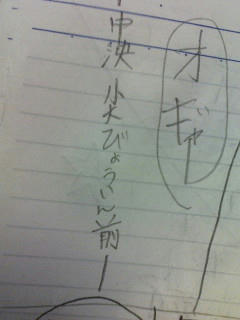 オギャー
ー中決 びょういん前ー